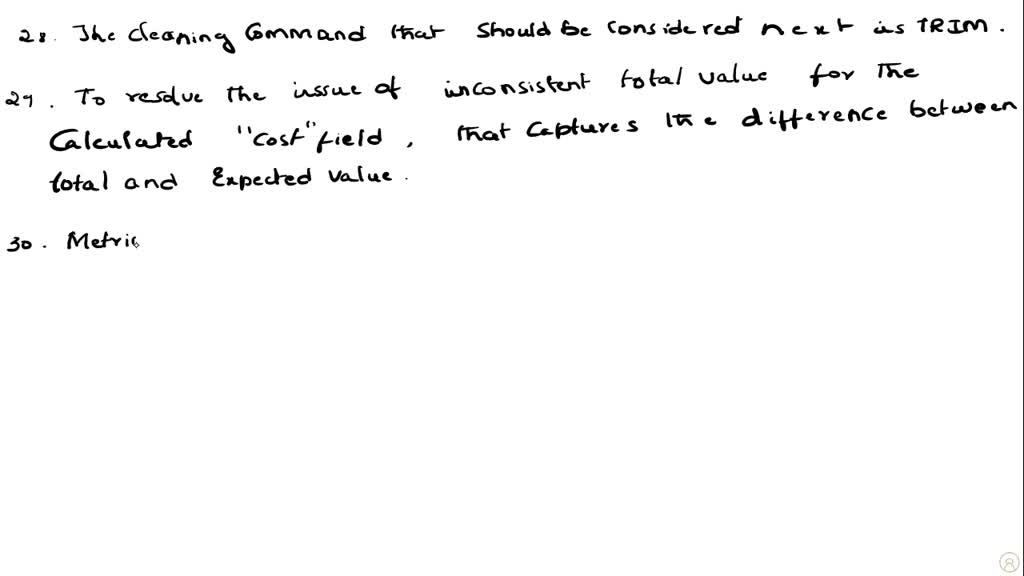 28. The cleaning Command that should be considered next is TRIM.
29. To resolve the issue of inconsistent total value for the
Calculated "cost" field, that captures the difference between
total and Expected value.
30. Metric